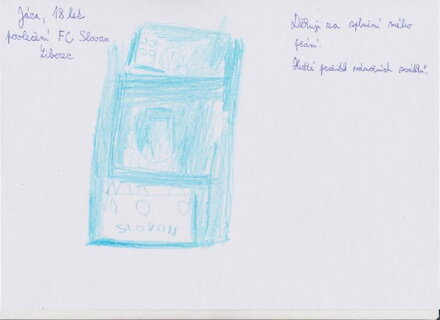 Jára, 18 let
povlečení FC Slovan
Liberec
Děkuji za splnění mého
přání.
Hezké prožití vánočních svátků.
SLOVAN